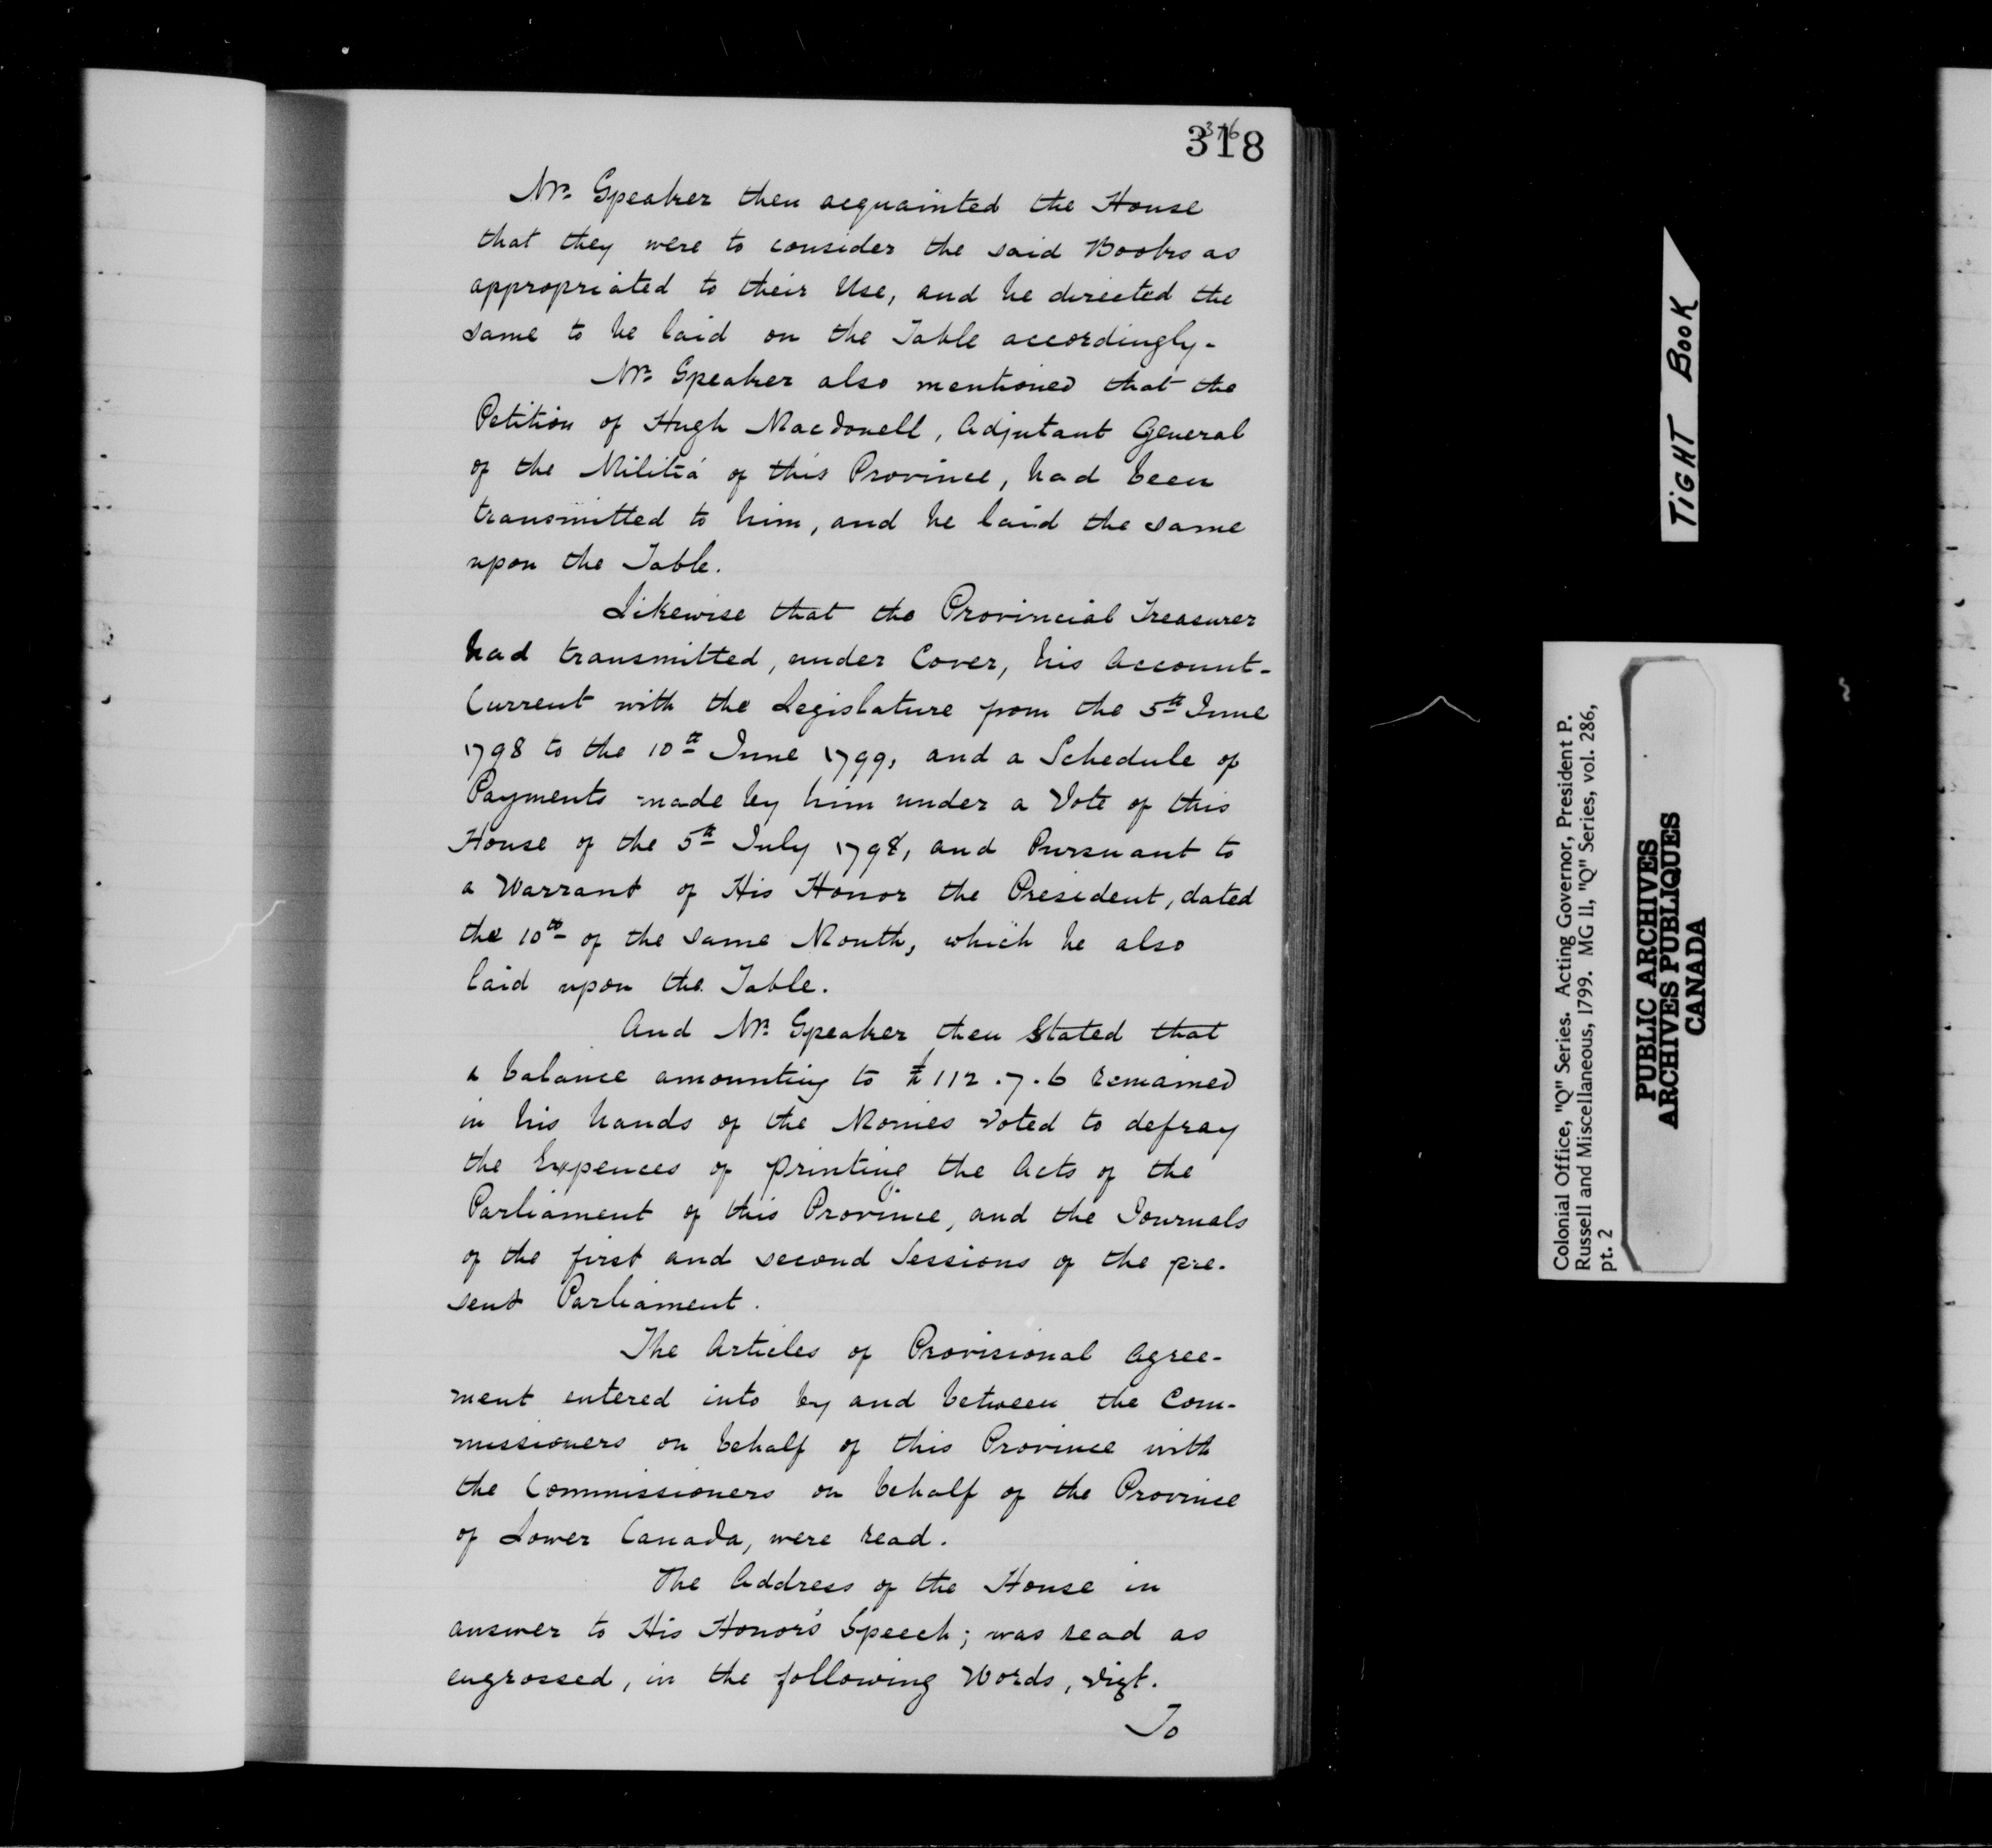 318
376
Mr. Speaker then acquainted the House
that they were to consider the said Books as
appropriated to their Use, and he directed the
same to be laid on the Table accordingly.
Mr. Speaker also mentioned that the
Petition of Hugh Macdonell, Adjutant General
of the Militia of this Province, had been
transmitted to him, and he laid the same
upon the Table.
Likewise that the Provincial Treasurer
had transmitted, under Cover, his Account-
Current with the Legislature from the 5th June
1798 to the 10th June 1799, and a Schedule of
Payments made by him under a Vote of this
House of the 5th July 1798, and Pursuant to
a Warrant of His Honor the President, dated
the 10th of the same Month, which he also
laid upon the Table.
And Mr. Speaker then Stated that
a balance amounting to £112.7.6 remained
in his hands of the Monies Voted to defray
the Expences of printing the Acts of the
Parliament of this Province, and the Journals
of the first and second Sessions of the pre-
sent Parliament.
The Articles of Provisional Agree-
ment entered into by and between the Com-
missioners on behalf of this Province with
the Commissioners on behalf of the Province
of Lower Canada, were read.
The Address of the House in
answer to His Honor's Speech; was read as
engrossed, in the following Words, Vizt.
To
TIGHT BOOK
Colonial Office, "Q" Series. Acting Governor, President P.
Russell and Miscellaneous, 1799. MG 11, "Q" Series, vol. 286,
pt. 2
PUBLIC ARCHIVES
ARCHIVES PUBLIQUES
CANADA